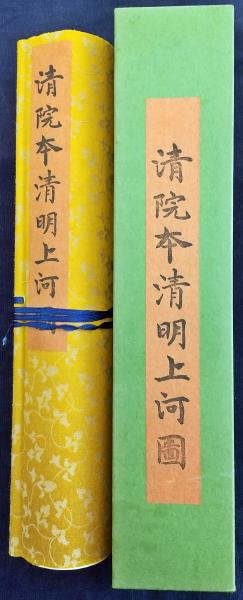 清院本清明上河
清院本清明上河圖